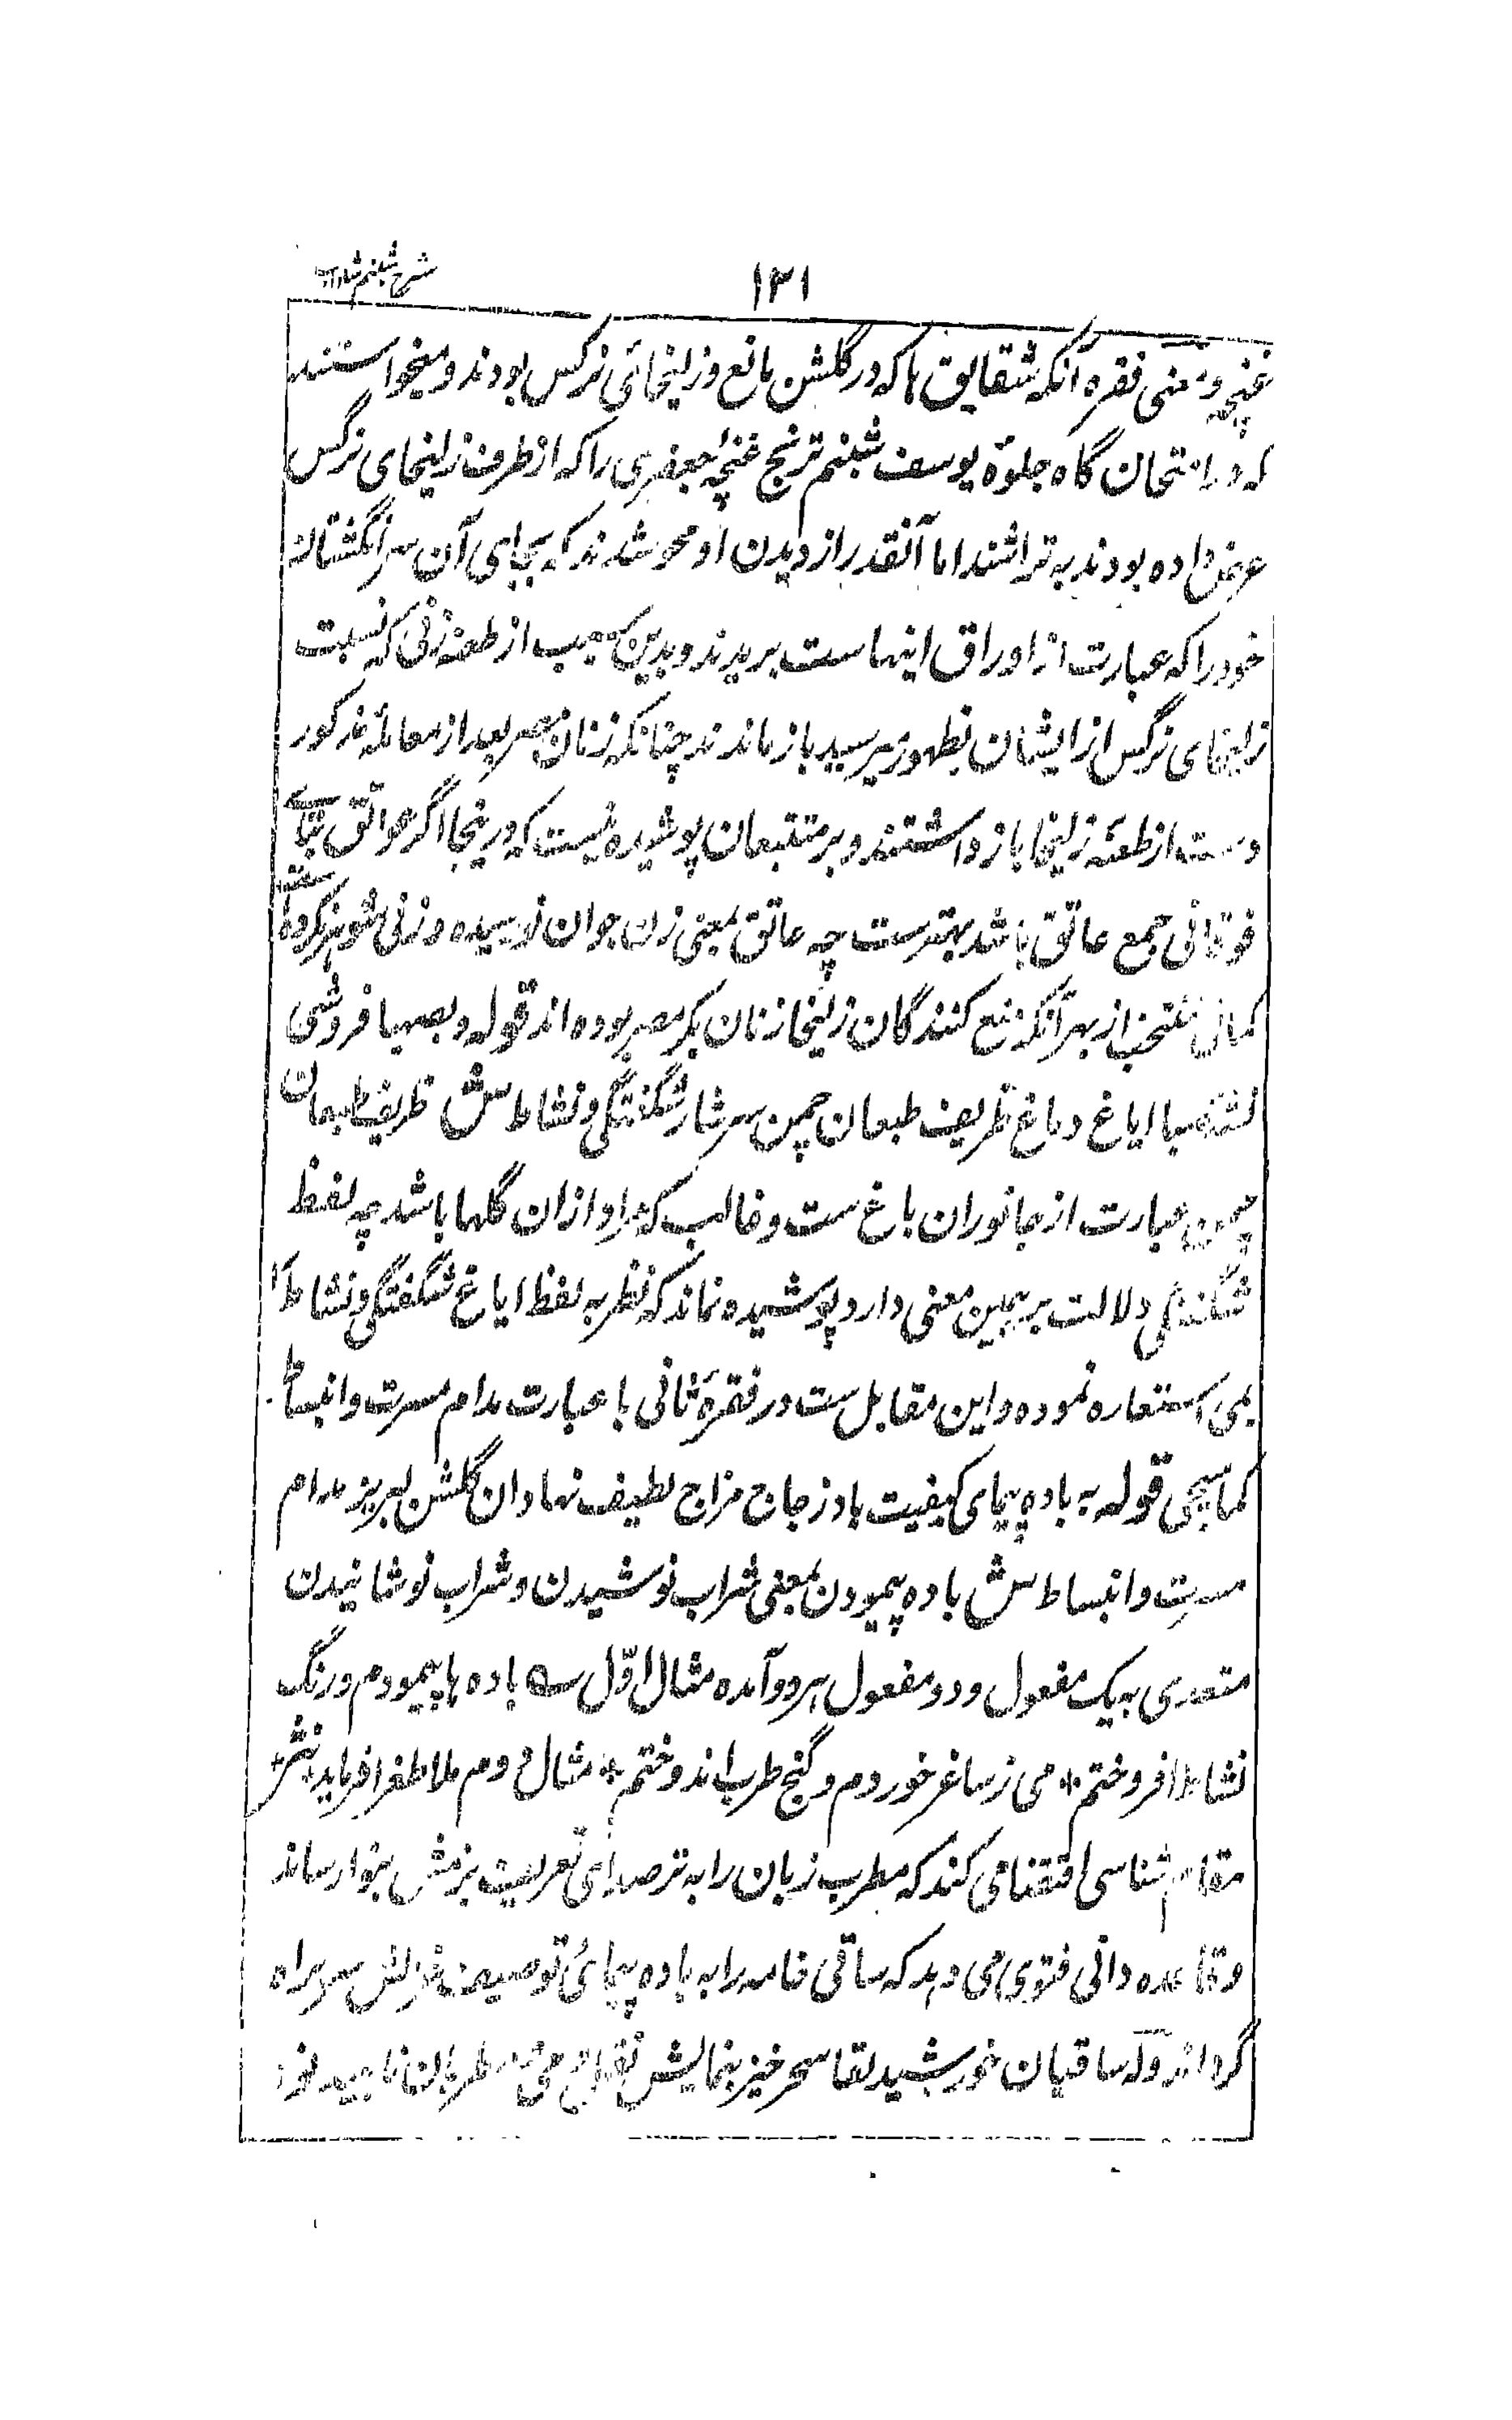 ۱۳۱
شرح شبنم شاداب
غنچه و معنی فقره آنکه شقایق ها که در گلشن مانع وزلیخائی نرگس بودند و میخواستند
که در امتحان گاه جلوهٔ یوسف شبنم ترنج غنچهٔ جعفری را که از طرف زلیخای نرگس
عرض داده بودند به تراشند اما آنقدر از دیدن او محو شدند که بجای آن سر انگشتان
خود را که عبارت از اوراق اینهاست بریدند و بدین سبب از طعنه زنی که نسبت
زلیخای نرگس از ایشان بظهور میرسید باز ماندند چنانکه زنان مصر بعد از معائنه مذکور
دست از طعنه زلیخا باز داشتند و بر متتبعان پوشیده نیست که درینجا اگر عواتق بتای
فوقانی جمع عاتق باشد بهترست چه عاتق بمعنی زن جوان نو رسیده و زنی شوهر نکرده است
کما فی منتخب از بهر آنکه منع کنندگان زلیخا زنان بکر مصر بوده اند قوله و بصهبا فروشی
نشئه صبا ایاغ دماغ ظریف طبعان چمن سرشار شگفتگی و نشاط ش ظریف طبعان
چمن عبارت از جانوران باغ ست و غالب که مراد ازان گلها باشد چه لفظ
شگفتگی دلالت بر همین معنی دارد پوشیده نماند که نظر به لفظ ایاغ شگفتگی و نشاط را
بمی استعاره نموده و این مقابل ست در فقرهٔ ثانی با عبارت مدام مسرت و انبساط
کما سیجئی قوله به باده پیمای کیفیت باد زجاج مزاج لطیف نهادان گلشن لبریز مدام
مسرت و انبساط ش باده پیمودن بمعنی شراب نوشیدن و شراب نوشانیدن
متعدی به یک مفعول و دو مفعول هر دو آمده مثال اوّل ؎ باده ها پیمودم و رنگ
نشاط افروختم * می ز ساغر خوردم و گنج طرب اندوختم * مثال دوم ملا طغرا فرماید نثر
مقام شناسی اقتضا می کند که مطرب زبان را به تر صدای تعریف بزمش بنوا رساند
و قاعده دانی فتوی می دهد که ساقی خامه را به باده پیمائی توصیف بزمش سر براه
گرداند قوله ساقیان خورشید لقا سحر خیز بنمایش